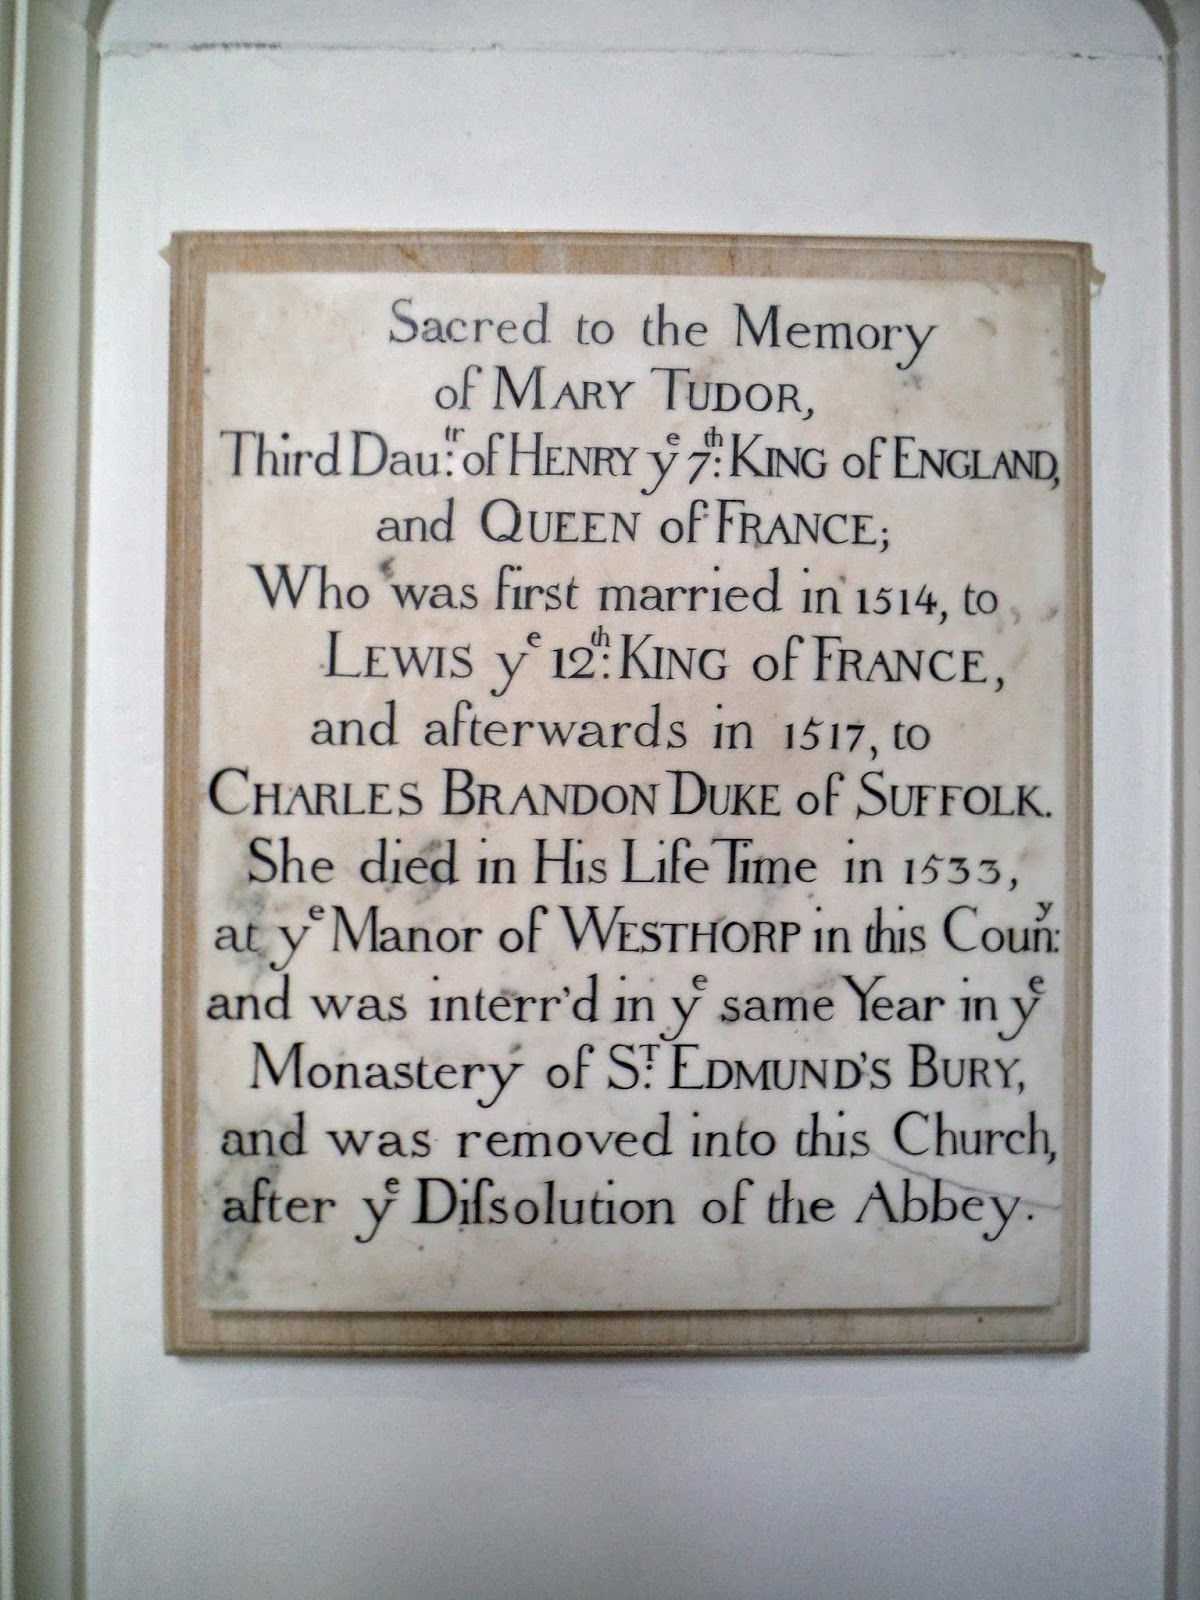 Sacred to the Memory
of MARY TUDOR,
Third Dau:tr of HENRY ye 7:th KING of ENGLAND,
and QUEEN of FRANCE;
Who was first married in 1514, to
LEWIS ye 12:th KING of FRANCE,
and afterwards in 1517, to
CHARLES BRANDON DUKE of SUFFOLK.
She died in His Life Time in 1533,
at ye Manor of WESTHORP in this Coun:y
and was interr'd in ye same Year in ye
Monastery of S:T EDMUND'S BURY,
and was removed into this Church,
after ye Diſsolution of the Abbey.